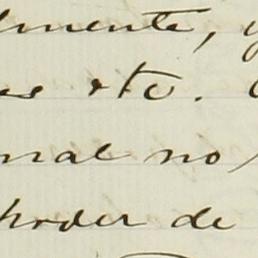 lmente, y
es etc.
nal no
poder de